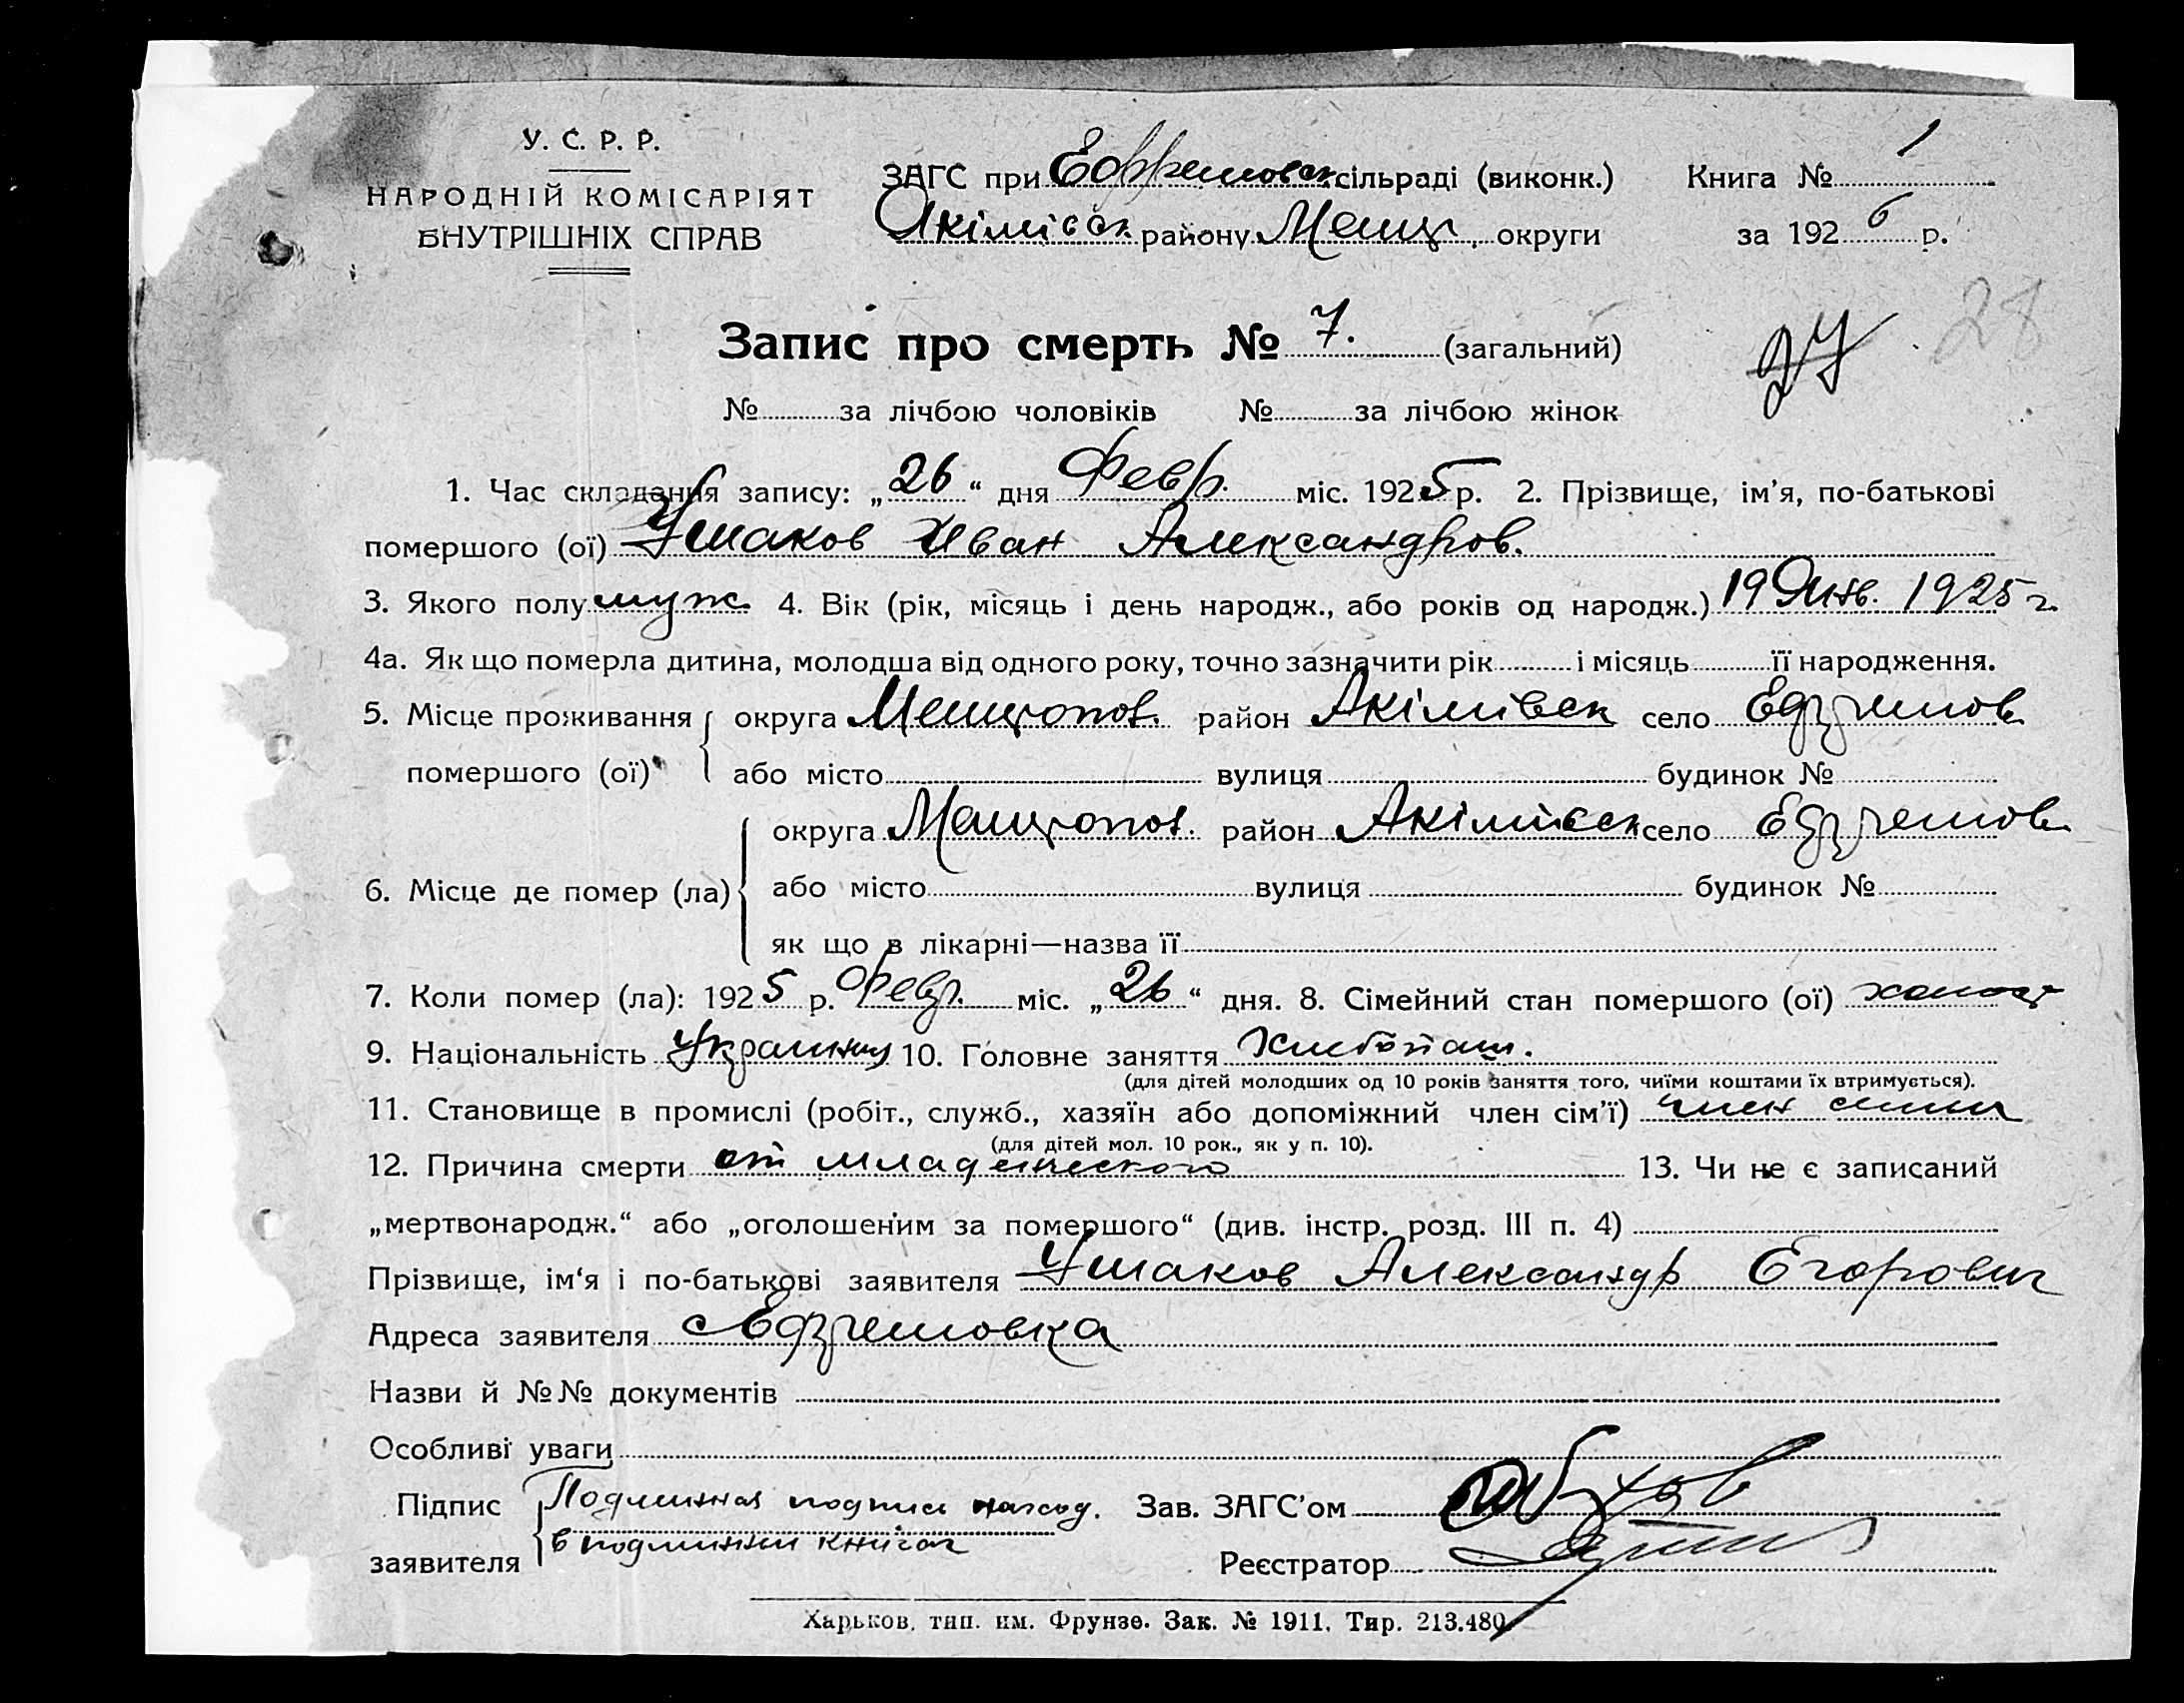 У. С. Р. Р.
НАРОДНІЙ КОМІСАРІЯТ
ВНУТРІШНІХ СПРАВ
ЗАГС при Ефремовск сільраді (виконк.) Книга № 1
Якімівск району Меліт. округи за 1926 р.
28
27
Запис про смерть № 7. (загальний)
№ за лічбою чоловіків № за лічбою жінок
1. Час складання запису: „26“ дня Февр. міс. 1925 р. 2. Прізвище, ім’я, по-батькові
помершого (ої) Ушаков Иван Александров.
3. Якого полу муж. 4. Вік (рік, місяць і день народж., або років од народж.) 19 Янв. 1925 г.
4а. Як що померла дитина, молодша від одного року, точно зазначити рік і місяць її народження.
5. Місце проживання округа Мелітопол. район Акімівск село Ефремов
помершого (ої) або місто вулиця будинок №
округа Мелітопол. район Акімівск село Ефремов
6. Місце де помер (ла) або місто вулиця будинок №
як що в лікарні—назва її
7. Коли помер (ла): 1925 р. Февр. міс. „26“ дня. 8. Сімейний стан помершого (ої) холост
9. Національність 10. Головне заняття
(для дітей молодших од 10 років заняття того, чиїми коштами їх втримується).
11. Становище в промислі (робіт., служб., хазяїн або допоміжний член сім’ї) член семьи
(для дітей мол. 10 рок., як у п. 10).
12. Причина смерти от младенческого 13. Чи не є записаний
„мертвонародж.“ або „оголошеним за помершого“ (див. інстр. розд. III п. 4)
Прізвище, ім‘я і по-батькові заявителя Ушаков Александр Егорович
Адреса заявителя с Ефремовка
Назви й №№ документів
Особливі уваги
Підпис Подлинная подпись наход. Зав. ЗАГС’ом
заявителя в подлинной книге Реєстратор
Харьков, тип. им. Фрунзе. Зак. № 1911. Тир. 213.480